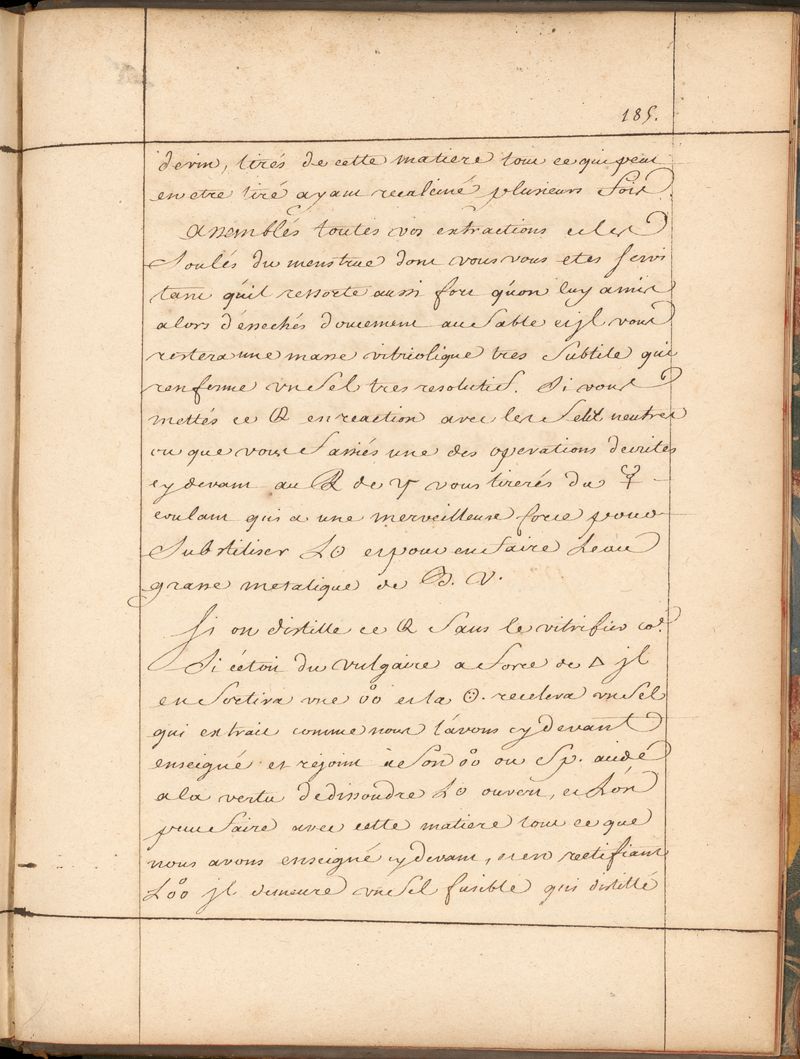 185.
devin, tirés de cette matiere tout ce qui peut
en etre tiré ayant recalciné plusieurs fois
Assemblés toutes vos extractions et les
Soulés du menstrue dont vous vous etes servi
tant qu'il ressorte aussi fort qu'on luy a mis
alors d'éssechés doucement au Sable et jl vous
restera une masse vitriolique tres Subtile qui
renferme un Sel tres resolutif. Si vous
mettés ce en reaction avec les Sels neutres
ou que vous fassiés une des operations decrites
cy devant au de vous tirerés du ☿
coulant qui a une merveilleuse force pour
Subtiliser L☉ et pour en faire Leau
grasse metalique de B. V.
Si on distille ce Sans le vitrifier
Si cétoit du vulgaire a force de △ jl
en Sortira une et la recelera un Sel
qui extrait comme nous lávons cy devant
enseigné et rejoint a Son ou Sp. acide
a la vertu de dissoudre L☉ ouvert, et Lón
peut faire avec cette matiere tout ce que
nous avons enseigné cy devant, en rectifiant
jl demeure un Sel fusible qui distillé